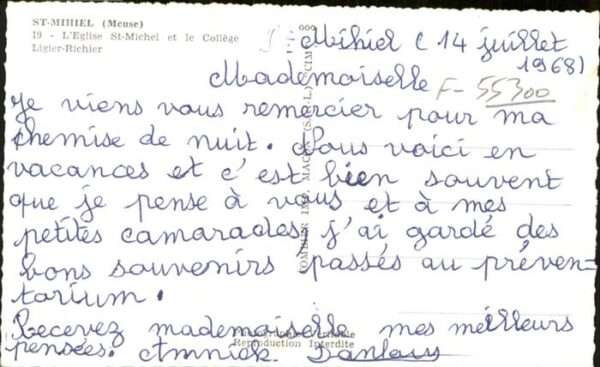 ST-MIHIEL (Meuse)
19 - L'Eglise St-Michel et le Collège
Ligier-Richier
Mihiel (14 juillet
1968)
Mademoiselle
F-55300
Je viens vous remercier pour ma
chemise de nuit. Nous voici en
vacances et c'est bien souvent
que je pense à vous et à mes
petites camarades, j'ai gardé des
bons souvenirs passés au préven=
tarium.
Recevez mademoiselle mes meilleurs
pensées. Annick
Reproduction Interdite
COMBIER IMP. MACON